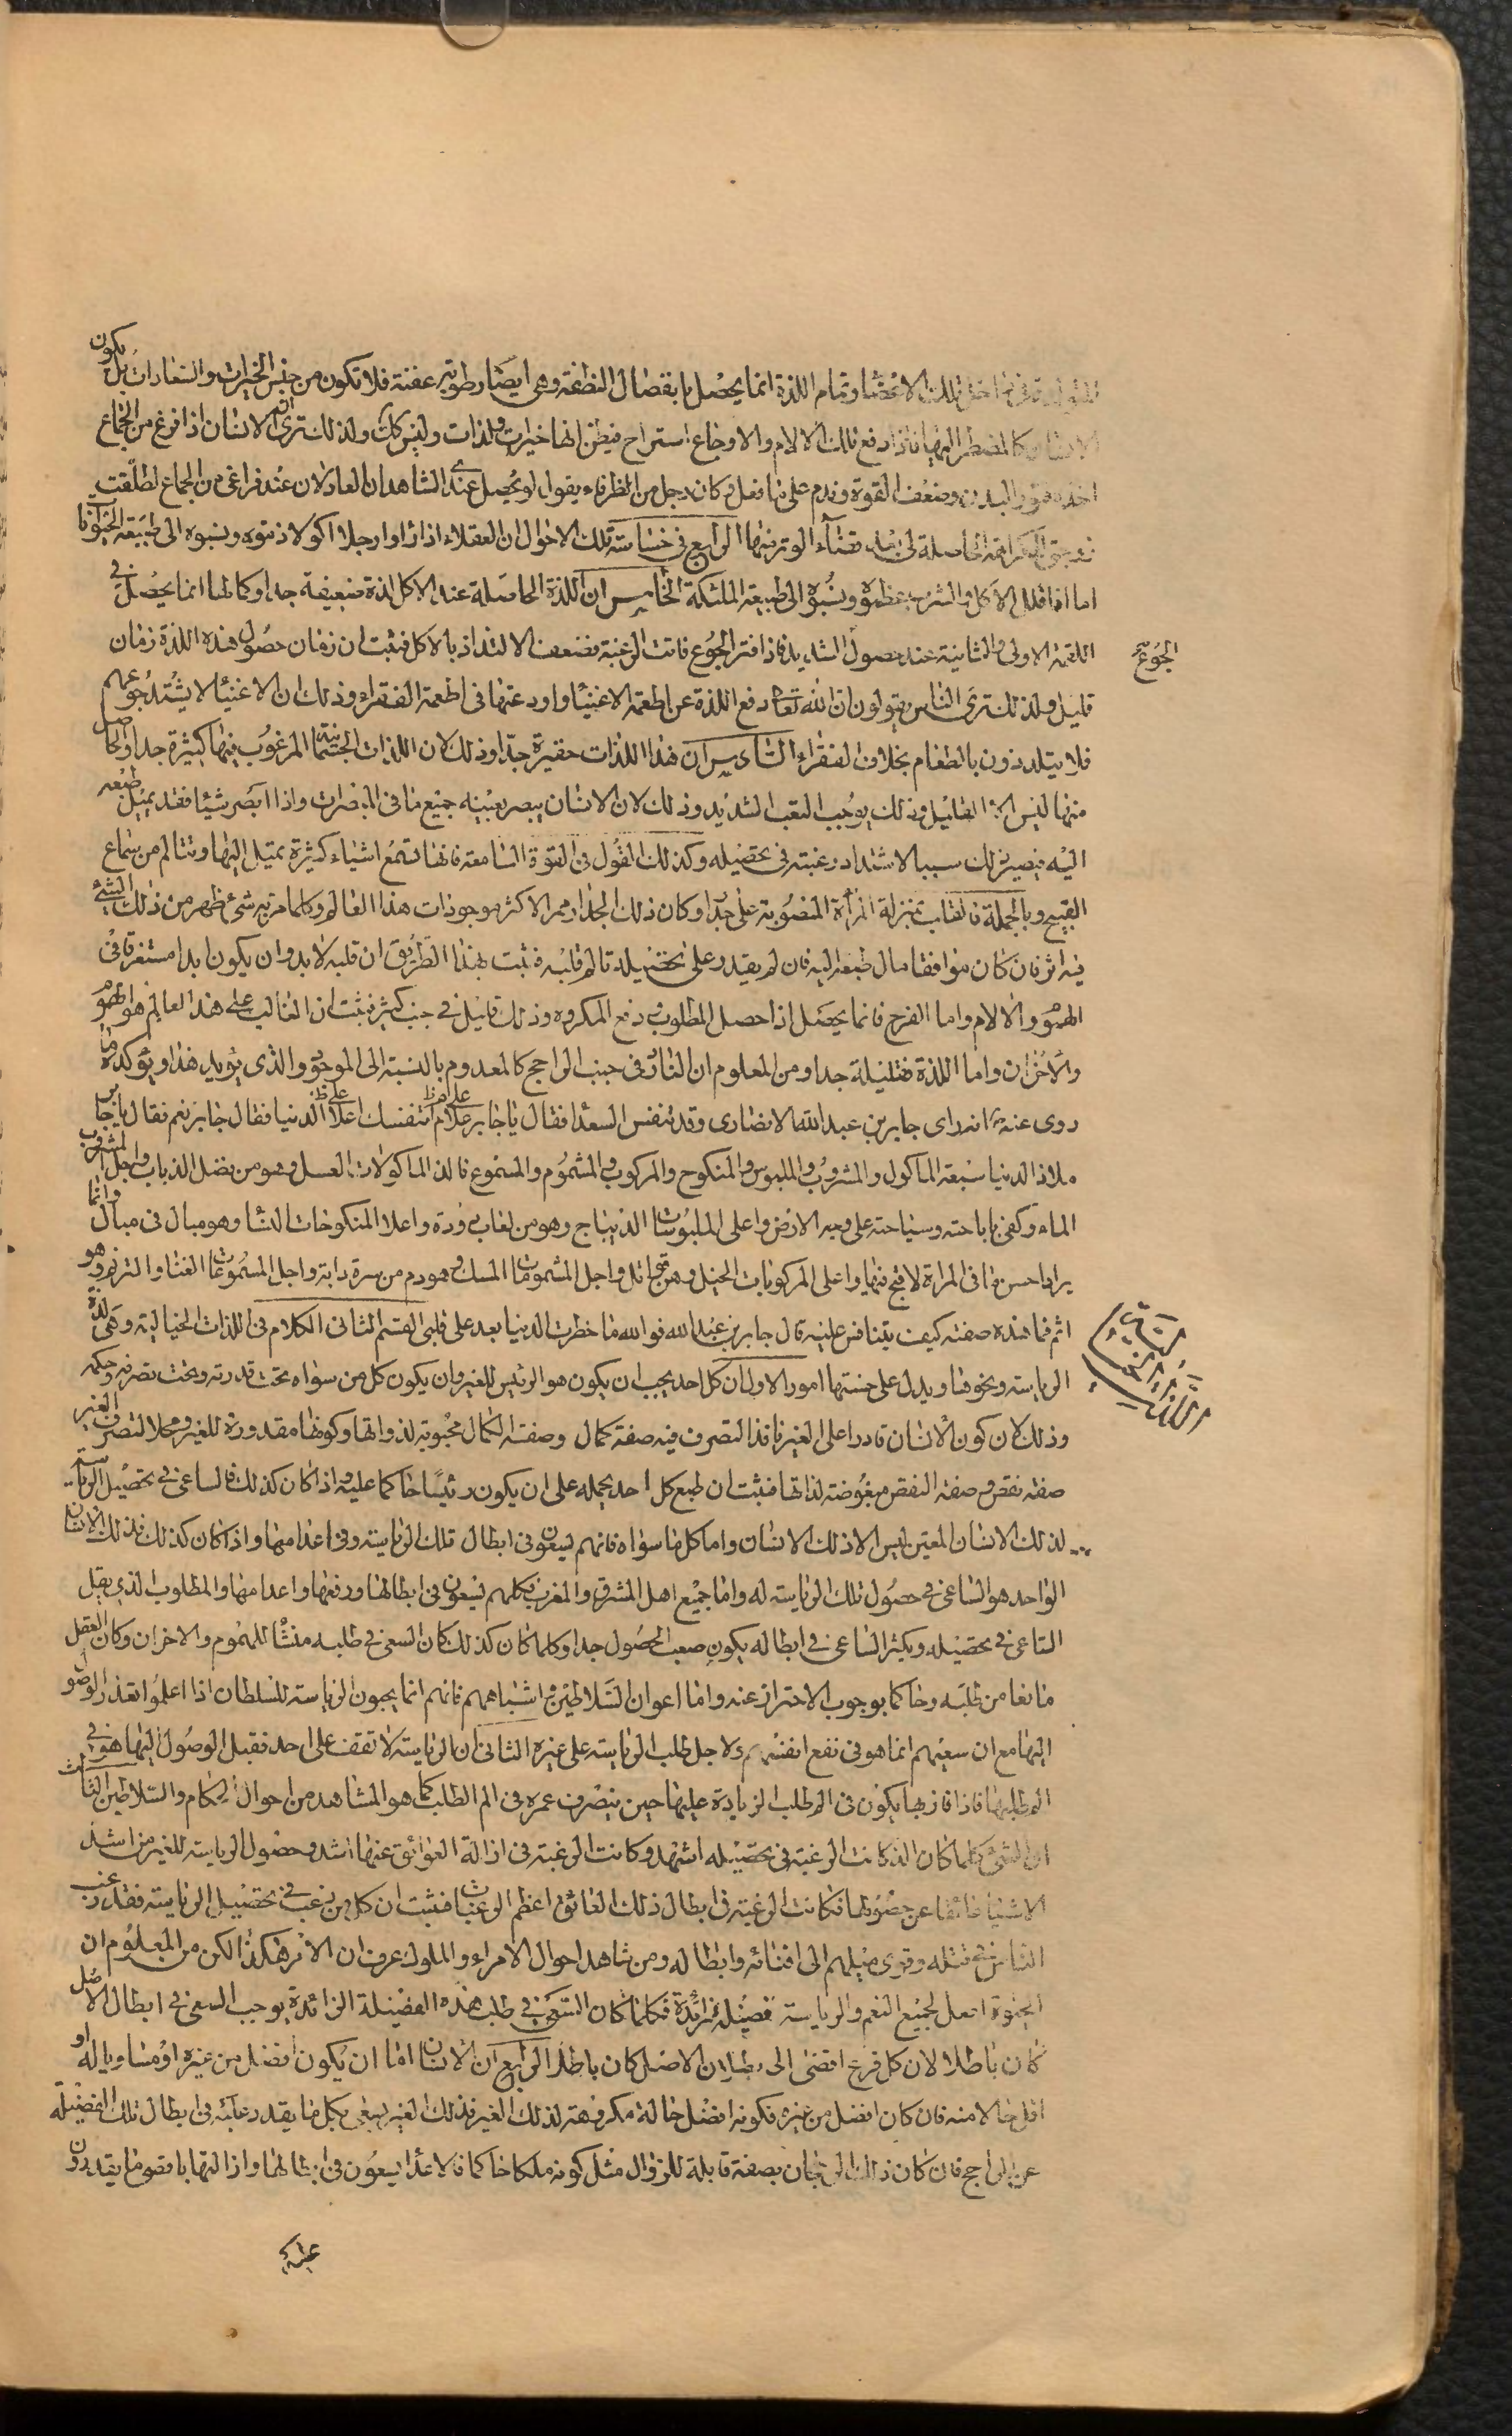 تلك الاعضا وتمام اللذة انما يحصل بانفصال النطفة وهى ايضا رطوبة عفنة فلا تكون من جنس الخيرات والسعادات بل يكون
الانسان كالمضطر اليها فاذا دفع تلك الالام والاوجاع استراح فيظن انها خيرات ولذات وليس كك ولذلك ترى ان الانسان اذا فرغ من الجماع
اخذه فتور البدن وضعف القوة وندم على ما فعل وكان رجل من الظرفاء يقول لو يحصل عندى الشاهدان العادلان عند فراغى من الجماع لطلقت
زوجتى الكراهة الحاصلة لى بعد قضآء الوتر منها الرابع فى خساسة تلك الاحوال ان العقلاء اذا راوا رجلا اكولا ذموه ونسبوه الى طبيعة الحيوان
اما اذا اقلل الاكل والشرب عظموه ونسبوه الى طبيعة الملئكة الخامس ان اللذة الحاصلة عند الاكل لذة ضعيفة جدا وكمالها انما يحصل فى
اللقمة الاولى والثانية عند حصول الشديد فاذا فتر الجوع فاتت الرغبة فضعف الالتذاذ بالاكل فثبت ان زمان حصول هذه اللذة زمان
الجوع
قليل ولذلك ترى الناس يقولون ان الله تعالى رفع اللذة عن اطعمة الاغنيا واودعها فى اطعمة الفقراء وذلك ان الاغنيا لا يشتد جوعهم
فلا يتلذذون بالطعام بخلاف الفقراء السادس ان هذا اللذات حقيرة جدا وذلك لان اللذات الجسمانية المرغوب فيها كثيرة جدا والحاصل
منها ليس الا القليل وذلك يوجب التعب الشديد وذلك لان الانسان يبصر بعينيه جميع ما فى المبصرات واذا ابصر شيئا فقد يميل طبعه
اليه فيصير ذلك سببا لاشتداد رغبته فى تحصيله وكذلك القول فى القوة السامعة فانها تسمع اشياء كثيرة تميل اليها وتتالم من سماع
القبيح وبالجملة فالقلب بمنزلة المرأة المنصوبة على جدار وكان ذلك الجدار ممر الاكثر موجودات هذا العالم وكلما مر به شئ ظهر من ذلك الشئ
فيه اثر فان كان موافقا مال طبعه اليه فان لم يقدر على تحصيله تالم قلبه فثبت بهذا الطريق ان قلبه لا بد وان يكون ابدا مستغرقا فى
الهموم والالام واما الفرح فانما يحصل اذا حصل المطلوب فى دفع المكروه وذلك قليل فى جنب كثير فثبت ان الغالب على هذا العالم هو الهموم
والاحزان واما اللذة فقليلة جدا ومن المعلوم ان النادر فى جنب الراجح كالمعدوم بالنسبة الى الموجود والذى يؤيد هذا ويؤكده ما
روى عنه انه راى جابر بن عبد الله الانصارى وقد تنفس السعدا فقال يا جابر علام تنفسك اعلا الدنيا فقال جابر نعم فقال يا جابر
على م ظ على ظ
ملاذ الدنيا سبعة الماكول والمشروب والملبوس والمنكوح والمركوب والمشموم والمسموع فالذ الماكولات العسل وهو من فضل الذباب واجل المشروب
الماء وكفى باباحته وسياحته على وجه الارض واعلى الملبوسات الديباج وهو من لعاب دودة واعلا المنكوحات النسا وهو مبال فى مبال وانما
يراد احسن ما فى المراة لاقبح منها واعلى المركوبات الخيل وهن قواتل واجل المشمومات المسك وهو دم من سرة دابة واجل المسموعات الغنا والترنم وهو
اثم فما هذه صفته كيف يتنافس عليه قال جابر بن عبد الله فو الله ما خطرت الدنيا بعد على قلبى القسم الثانى الكلام فى اللذات الخيالية وهى لذة
القسم الثانى فى اللذات الخيالية
الرياسة ونحوها ويدل على خستها امور الاول ان كل احد يحب ان يكون هو الرئيس للغير وان يكون كل من سواه تحت قدرته وتحت تصرفه وحكمه
وذلك لان كون الانسان قادرا على الغير نافذ التصرف فيه صفة كمال وصفة الكمال محبوبة لذواتها وكونها مقدورة للغير ومحلا لتصرف الغير
صفة نقص وصفة النقص مبغوضة لذاتها فثبت ان طبع كل احد يحمله على ان يكون رئيسا حاكما عليه واذا كان كذلك فالساعى فى تحصيل الرياسة
لذلك الانسان المعين ليس الا ذلك الانسان واما كل ما سواه فانهم يسعون فى ابطال تلك الرياسة وفى اعدامها واذا كان كذلك فذلك الانسان
الواحد هو الساعى فى حصول تلك الرياسة له واما جميع اهل المشرق والمغرب فكلهم يسعون فى ابطالها ورفعها واعدامها والمطلوب الذى يقل
الساعى فى تحصيله ويكثر الساعى فى ابطاله يكون صعب الحصول جدا وكلما كان كذلك كان السعى فى طلبه منشأ للهموم والاحزان وكان العقل
مانعا من طلبه وحاكما بوجوب الاحتراز عنه واما اعوان السلاطين واشباههم فانهم انما يحبون الرياسة للسلطان اذا علموا تعذر الوصول
اليها مع ان سعيهم انما هو فى نفع انفسهم ولاجل طلب الرياسة على غيره الثانى ان الرياسة لا تقف على احد فقبل الوصول اليها هو فى
الم طلبها فاذا فاز بها يكون فى الم طلب الزيادة عليها حين يتصرف عمره فى الم الطلب كما هو المشاهد من احوال الحكام والسلاطين الثالث
ان الشئ كلما كان الذ كانت الرغبة فى تحصيله اشد وكانت الرغبة فى ازالة العوائق عنها اشد وحصول الرياسة للغير من اشد
الاشياء عائقا عن حصولها فكانت الرغبة فى ابطال ذلك العائق اعظم الرغبات فثبت ان كل من رغب فى تحصيل الرياسة فقد رغب
الناس فى قتله وقوى ميلهم الى افنائه وابطاله ومن شاهد احوال الامراء والملوك عرف ان الامر هكذا لكن من المعلوم ان
الحيوة اصل لجميع النعم والرياسة فضيلة زائدة فكلما كان السعى فى طلب هذه الفضيلة الزائدة يوجب السعى فى ابطال الاصل
كان باطلا لان كل فرع افضى الى بطلان الاصل كان باطلا الرابع ان الانسان اما ان يكون افضل من غيره او مساويا له او
اقل حالا منه فان كان افضل من غيره فكونه افضل حالة مكروهة لذلك الغير فذلك الغير يسعى بكل ما يقدر عليه فى ابطال تلك الفضيلة
عن الراجح فان كان ذلك الرجحان بصفة قابلة للزوال مثل كونه ملكا حاكما فالاعدا يسعون فى ابطالها وازالتها باقصى ما يقدرون
عليه